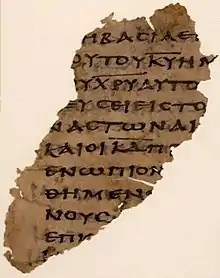 ΗΒΑϹΙΛΕ
ΟΥΤΟΥΚ̅Υ̅ΗΜ
ΟΥΧ̅Ρ̅Υ̅ΑΥΤΟ
ΕΥϹΕΙΕΙϹΤΟ
ΝΑϹΤΩΝΑΙ
ΚΑΙΟΙΚ̅Δ̅Π
ΕΝΩΠΙΟΝ
ΘΗΜΕΝ
ΝΟΥϹ
ΕΠΙ